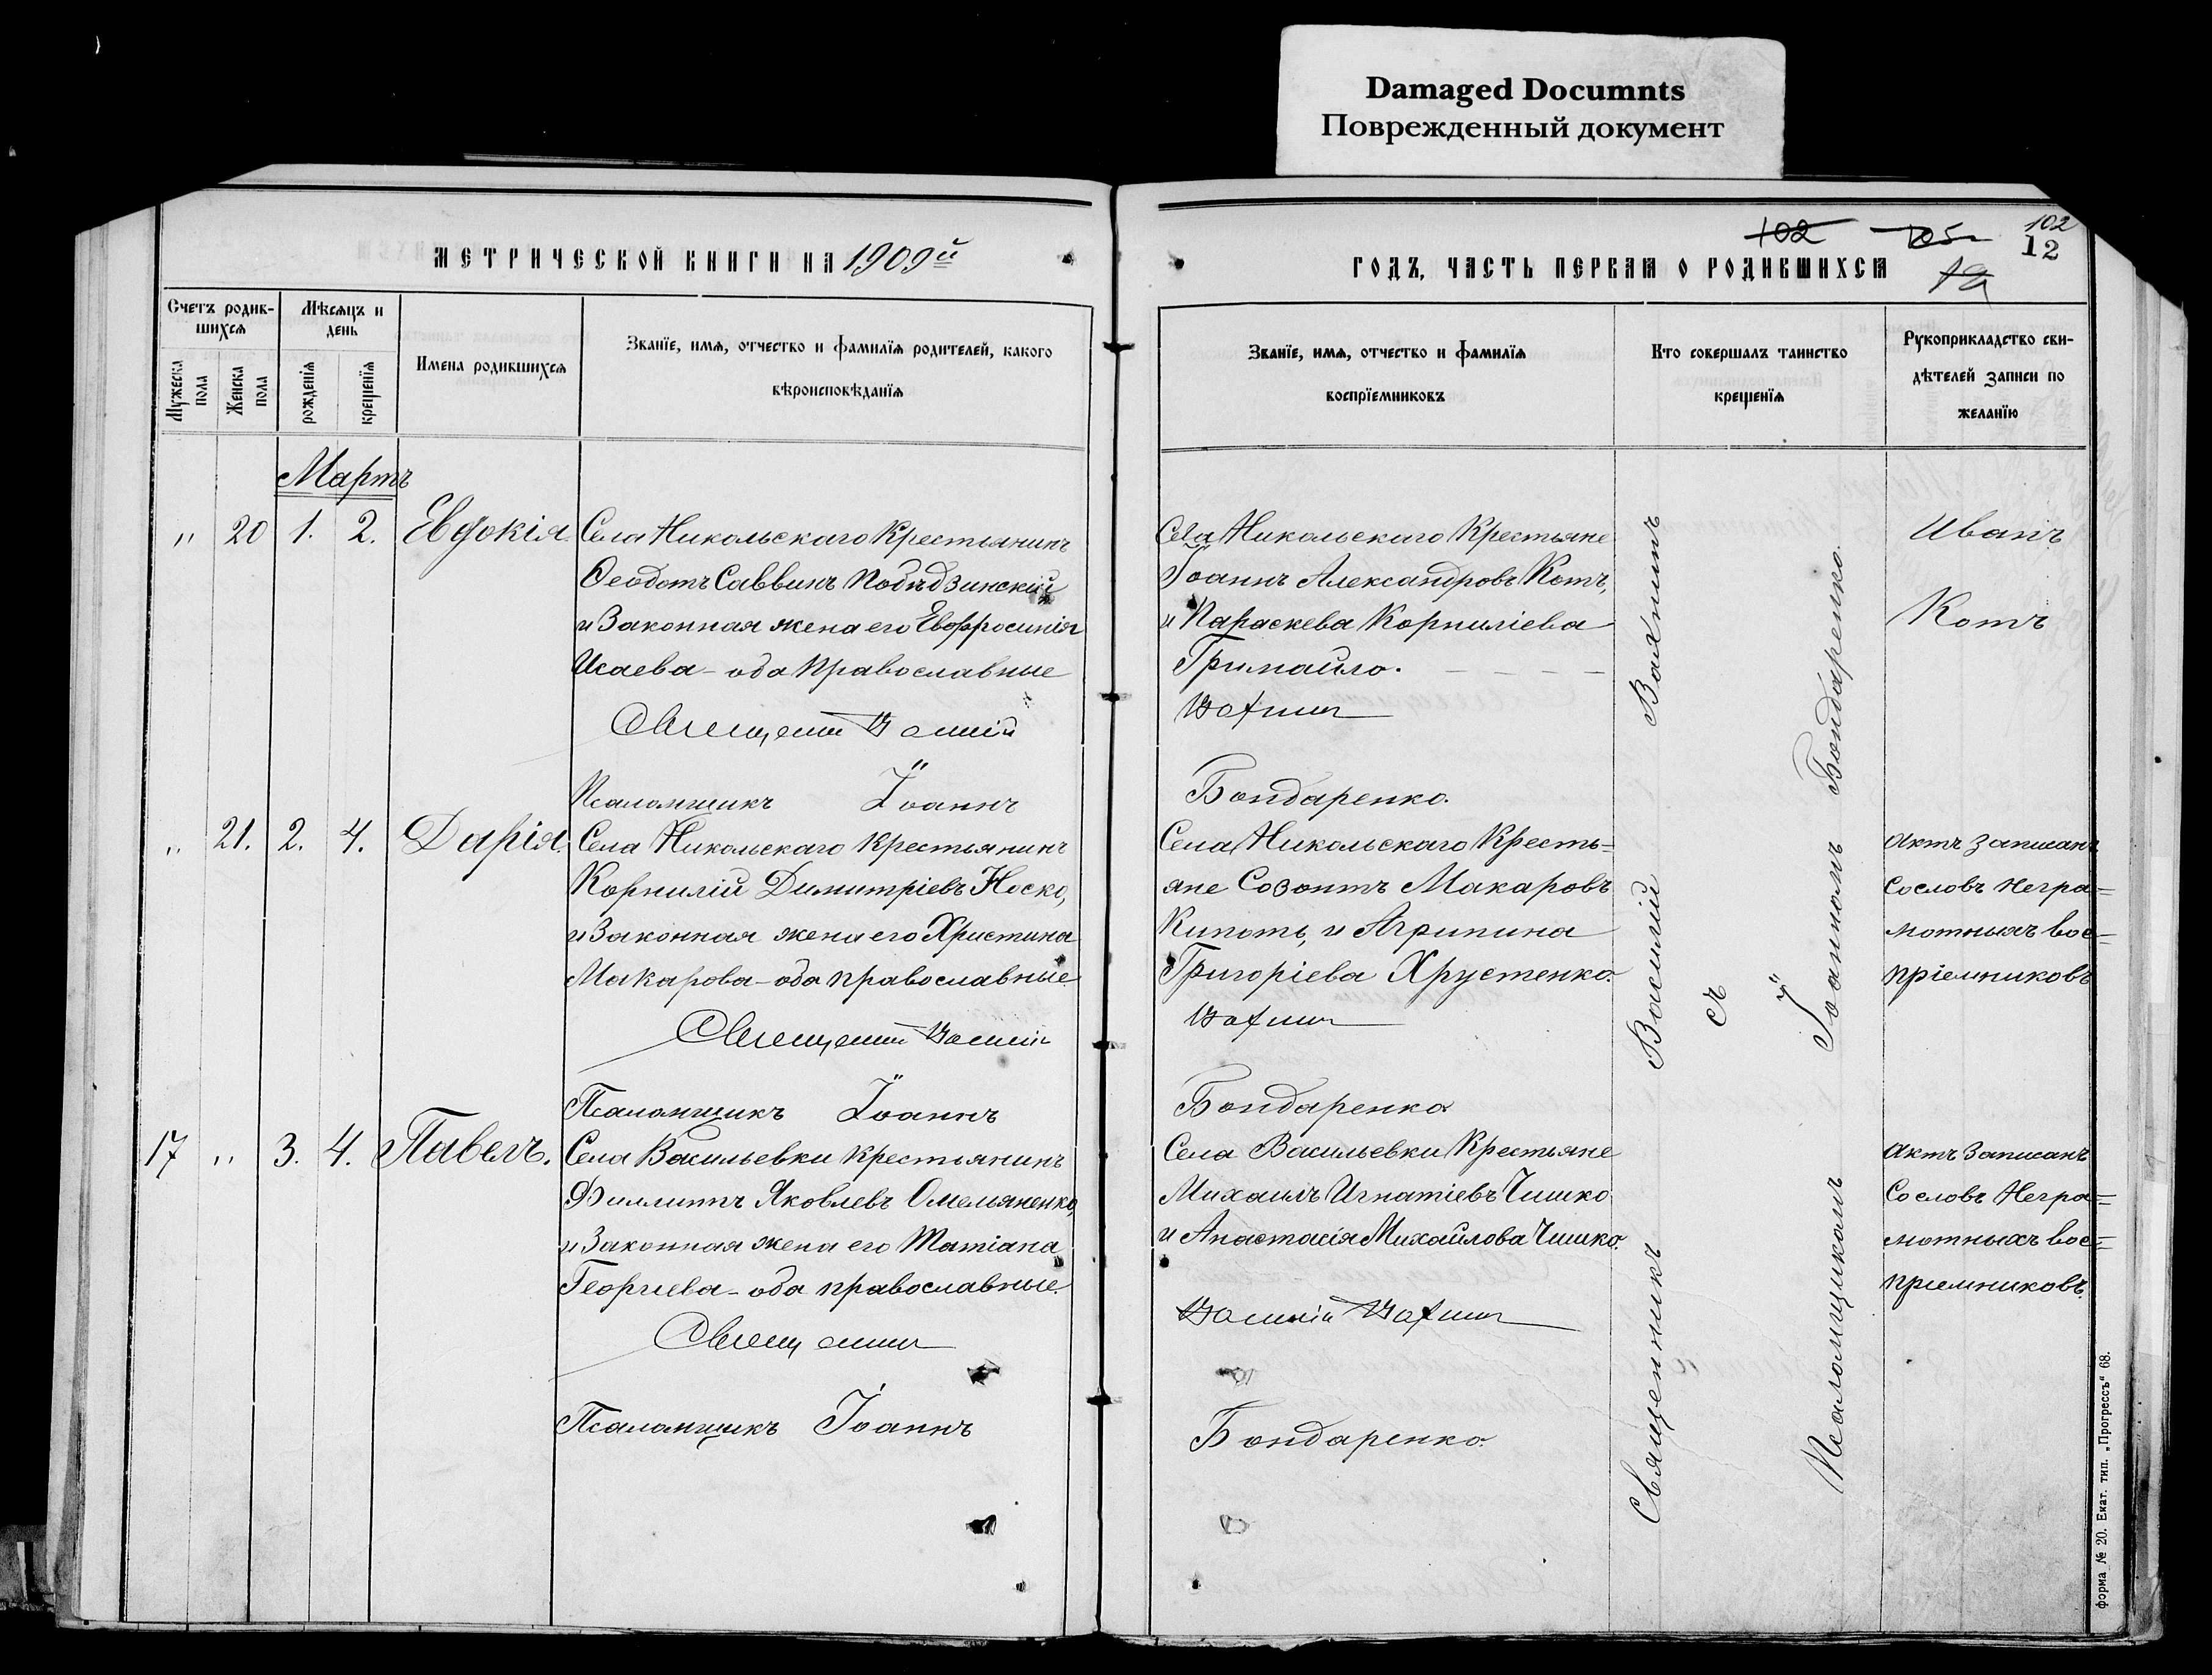 Damaged Documnts
Поврежденный документ
МЕТРИЧЕСКОЙ КНИГИ НА 1909й
ГОДЪ, ЧАСТЬ ПЕРВАЯ О РОДИВШИХСЯ
102
105
102
12
Счетъ родив-
шихся
Мужеска пола
Женска пола
Мѣсяцъ и
день
рожденія
крещенія
Имена родившихся
Званіе, имя, отчество и фамилія родителей, какого
вѣроисповѣданія
Званіе, имя, отчество и фамилія
воспріемниковъ
Кто совершалъ таинство
крещенія
Рукоприкладство сви-
дѣтелей записи по
желанію
Мартъ
" 20 1. 2. Евдокія.
Села Никольскаго Крестьянинъ
Ѳеодотъ Саввинъ
и Законная жена его Евфросинія
Исаева - оба православные
Священник Василій
Псаломщикъ Іоаннъ
Села Никольскаго Крестьяне
Іоаннъ Александровъ Котъ,
и Параскева Корниліева
Гримайло.
Вахнин
Бондаренко.
Иванъ
Котъ
" 21. 2. 4. Дарія.
Села Никольскаго Крестьянинъ
Корнилій Димитріевъ Носко,
и Законная жена его Христина
Макарова - оба православные
Священник Василій
Псаломщикъ Іоаннъ
Села Никольскаго Кресть=
яне Созонтъ Макаровъ
Кипоть, и Агрипина
Григоріева Хрустенко.
Вахнин
Бондаренко
Актъ записанъ
со словъ негра=
мотныхъ вос=
пріемниковъ
17 " 3. 4. Павелъ.
Села Васильевки Крестьянинъ
Филиппъ Яковлевъ Омельяненко,
и Законная жена его Татіана
Георгіева - оба православные.
Священник
Псаломщикъ Іоаннъ
Села Васильевки Крестьяне
Михаилъ Игнатіевъ Чишко
и Анастасія Михайлова Чишко.
Василій Вахнин
Бондаренко.
Актъ записанъ
со словъ негра=
мотныхъ вос=
пріемниковъ.
Священникъ Василій Вахнинъ
съ
Псаломщикомъ Іоанномъ Бондаренко.
форма № 20. Екат. тип. „Прогрессъ" 68.